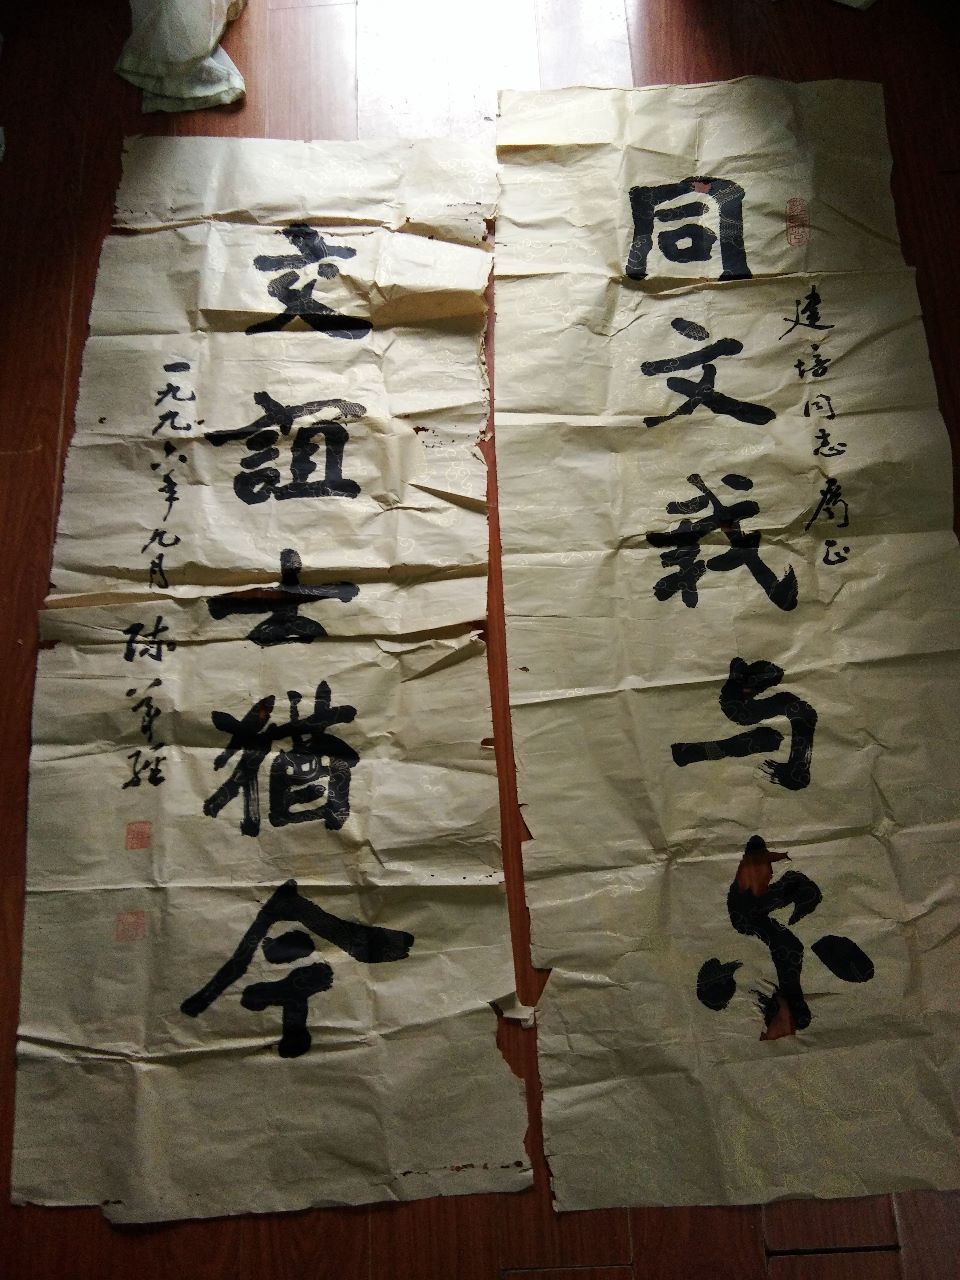 建培同志属正
同文我与尔
交誼古猶今
一九九六年九月 陈